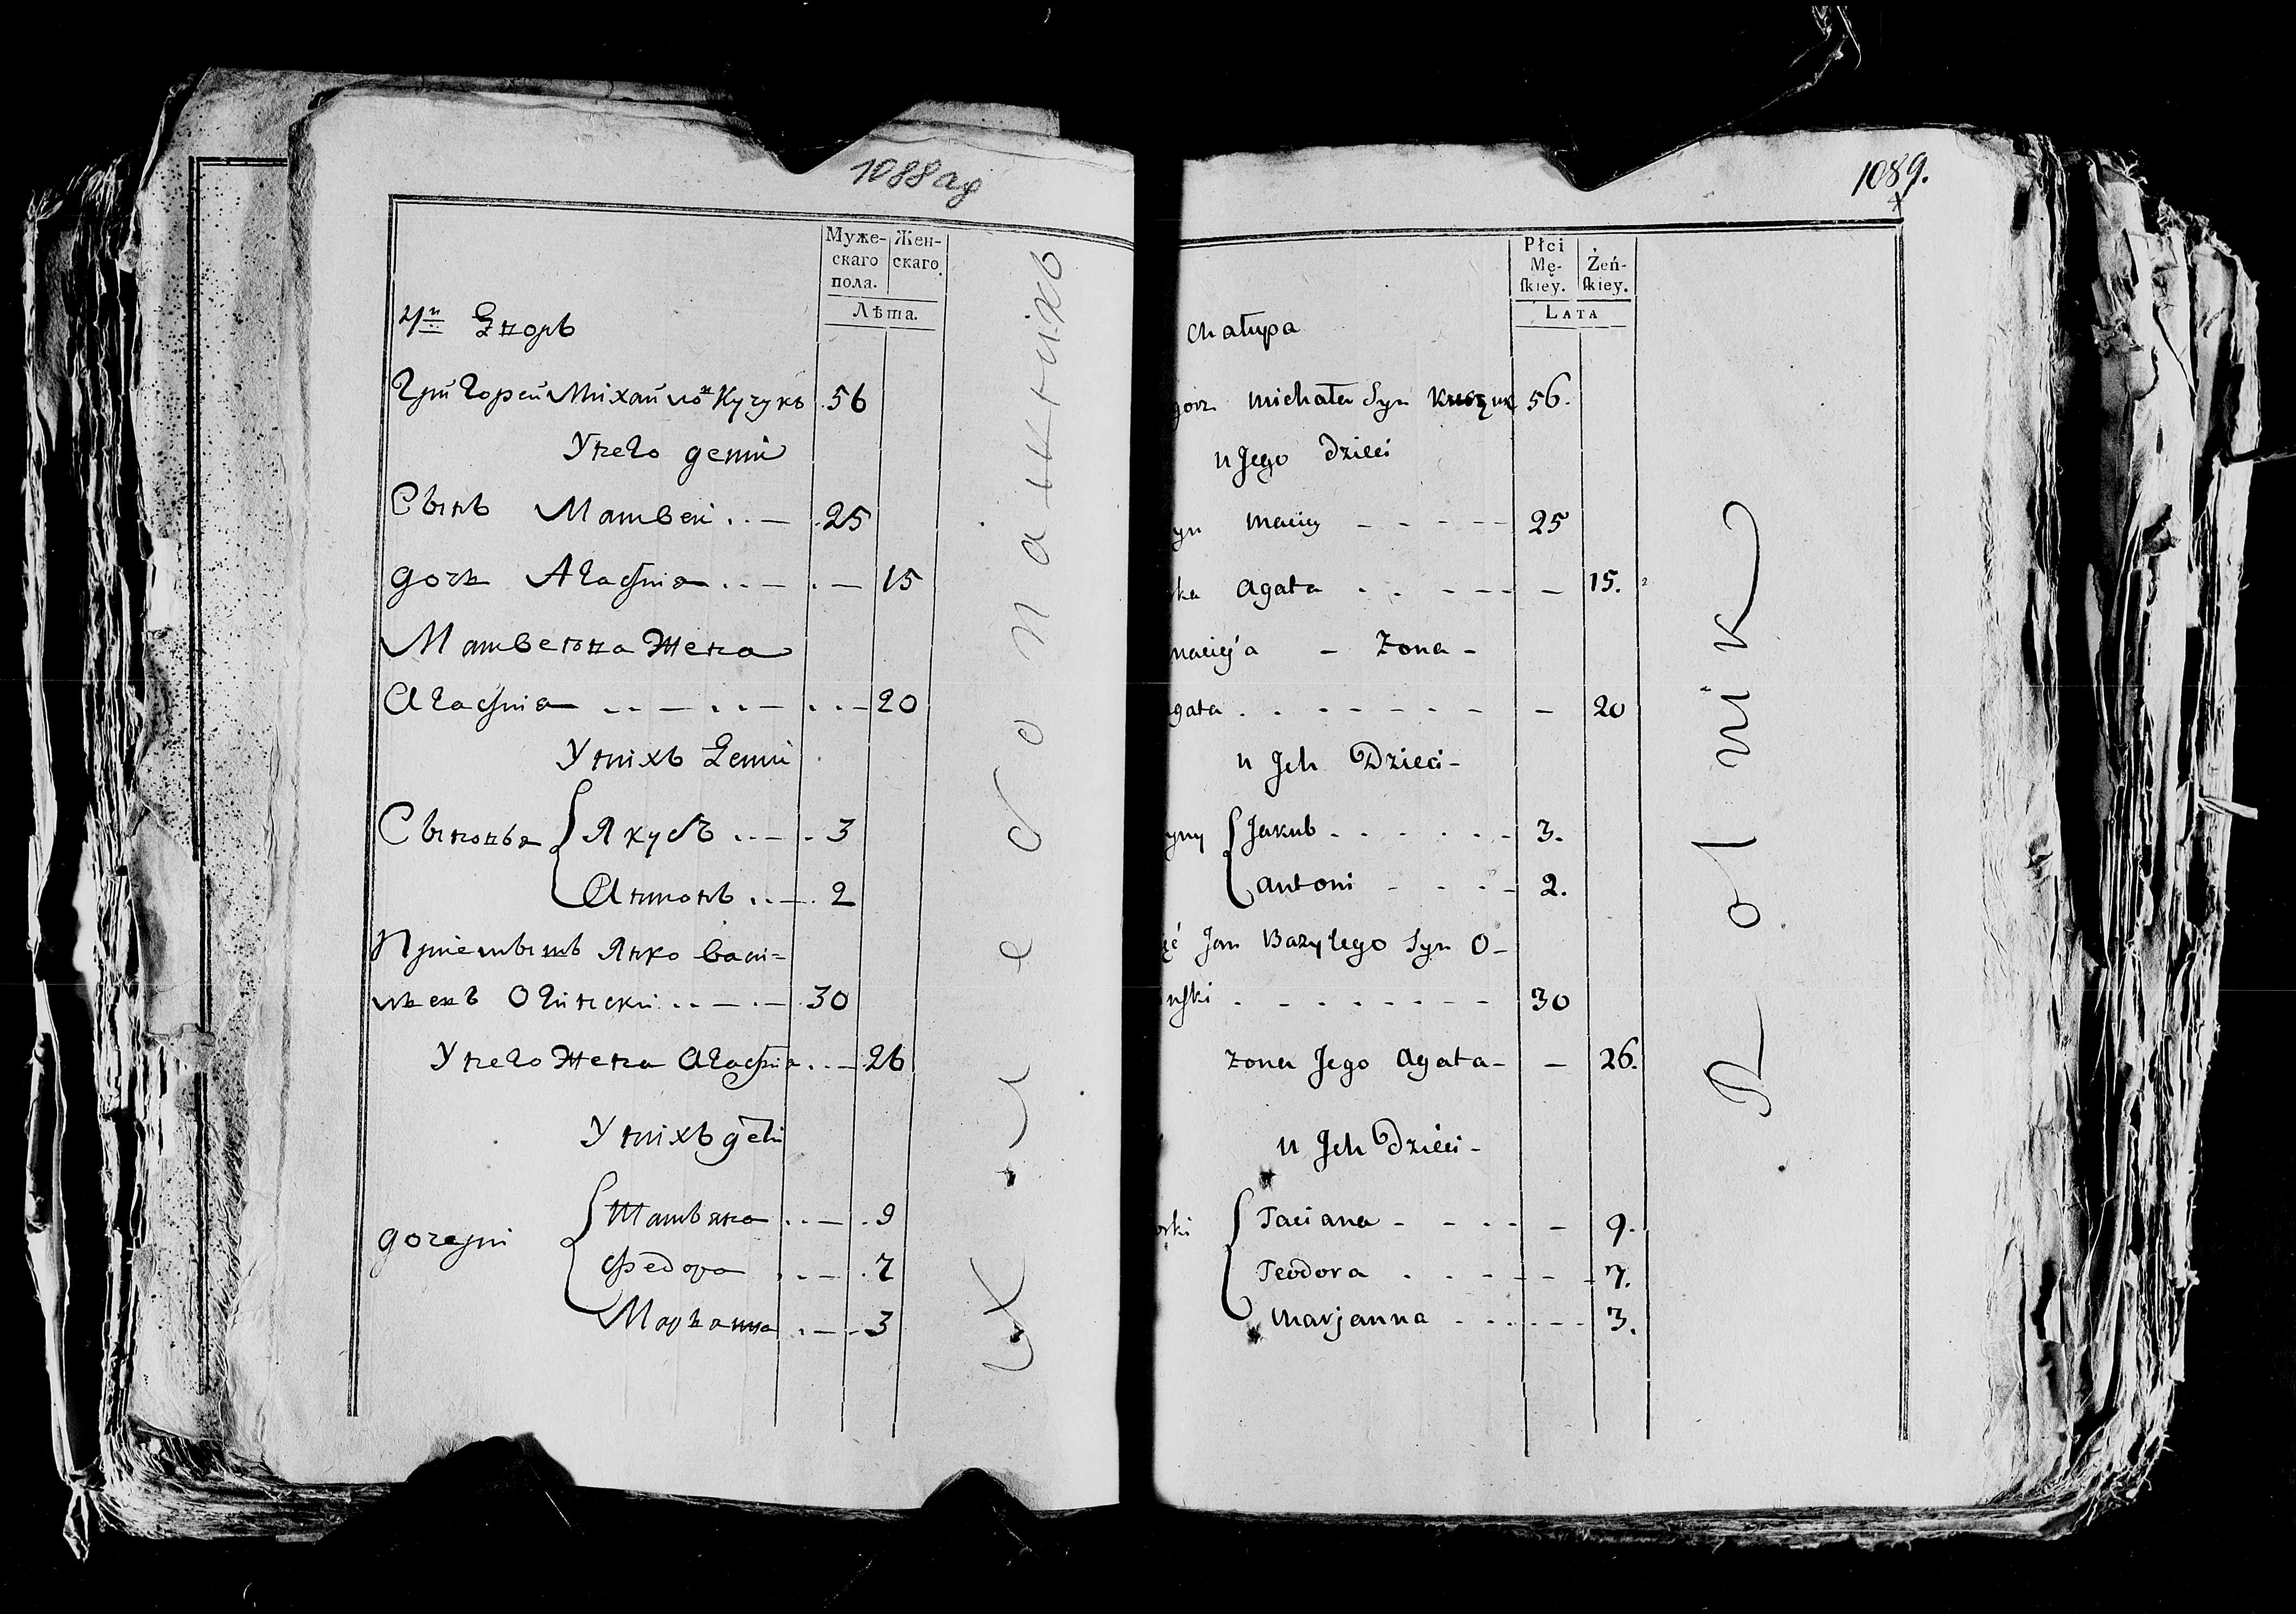 1088 об
Муже-
скаго
пола.
Жен-
скаго.
Лѣта.
4й Дворъ
Григорей Михайловъ Кучукъ 56
У него дети
Сынъ Матвей 25
дочь Агафия 15
Матвеева жена
Агафия 20
У нихъ Дети
Сыновья Якубъ 3
Антонъ 2
Приемышъ Янко Васи=
льевъ Огински 30
У него жена Агафия 26
У нихъ дети
дочери Татьяна 9
Федора 7
Марьанна 3
Хлебопашихъ
1089.
Płci
Mę-
skiey.
Żeń-
skiey.
LATA
Chałupa
gorz Michała Syn 56.
u Jego Dzieci
yn Maciey 25
rka Agata 15.
Macieja Zona
gata 20
u Jch Dzieci
yny Jakub 3.
Antoni 2.
ęć Jan Bazylego Syn O-
nski 30
zona Jego Agata 26.
u Jch Dzieci
orki Taciana 9.
Teodora 7.
Marjanna 3.
Rolnik